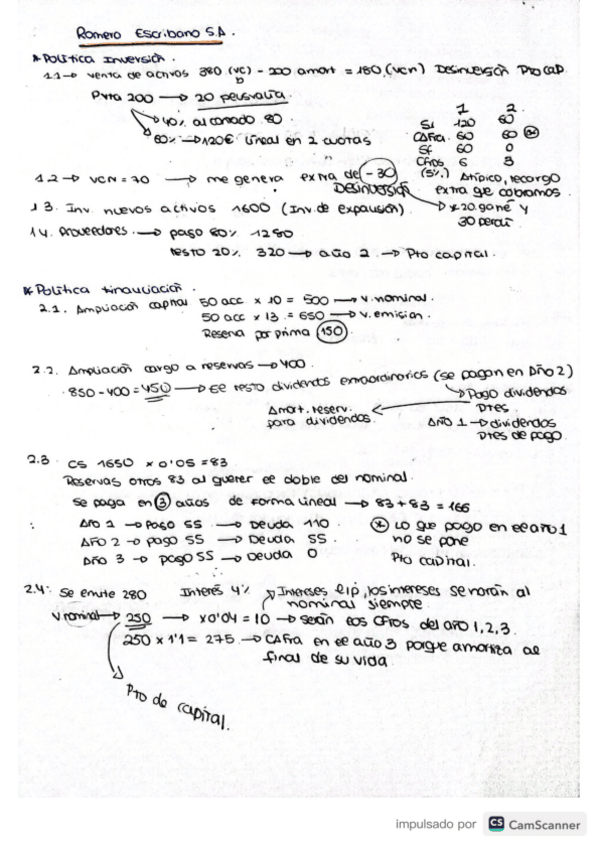 Romero Escribano S.A.
* Política Inversión.
1.1 → venta de activos 380 (VC) - 200 amort = 180 (VCN) Desinversión Pto Cap.
PVta 200 → 20 plusvalía.
→ 40% al contado. 80
→ 60% → 120€ lineal en 2 cuotas
1 2
SI 120 60
CAfra. 60 60 *
SF 60 0
Cfros 6 3
(5%)
1.2 → VCN = 70 → me genera extra de -30 Atípico, recargo
Desinversión extra que cobramos.
→ x 20 gané y
30 perdí
1 3. Inv. nuevos activos 1600 (Inv. de expansión)
1 4. Proveedores. → pago 80% 1280
resto 20% 320 → año 2 → Pto capital.
* Política financiación.
2.1. Ampliación capital 50 acc x 10 = 500 → V. nominal.
50 acc x 13 = 650 → V. emisión.
Reserva por prima 150
2.2. Ampliación cargo a reservas → 400
850 - 400 = 450 → El resto dividendos extraordinarios (se pagan en Año 2)
→ Pago dividendos
Dtes.
Amort. reserv.
para dividendos.
Año 1 → dividendos
Dtes de pago.
2.3 CS 1650 x 0'05 = 83
Reservas otros 83 al querer el doble del nominal.
Se paga en 3 años de forma lineal → 83 + 83 = 166
Año 1 → Pago 55 → Deuda 110.
Año 2 → pago 55 → Deuda 55.
Año 3 → pago 55 → Deuda 0
* Lo que pago en el año 1
no se pone
Pto capital.
2.4: Se emite 280 Interés 4% Intereses e l/p, los intereses se harán al
nominal siempre.
V nominal → 250 → x 0'04 = 10 → serán los Cfros del año 1, 2, 3.
250 x 1'1 = 275 → CAfra en el año 3 porque amortiza al
final de su vida.
Pto de capital.
impulsado por CS CamScanner